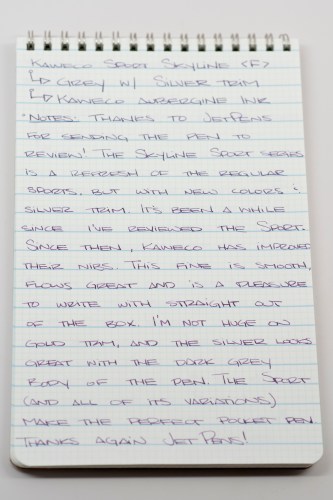 KAWECO SPORT SKYLINE <F>
↳ GREY W/ SILVER TRIM
↳ KAWECO AUBERGINE INK
·NOTES: THANKS TO JETPENS
FOR SENDING THE PEN TO
REVIEW! THE SKYLINE SPORT SERIES
IS A REFRESH OF THE REGULAR
SPORTS, BUT WITH NEW COLORS &
SILVER TRIM. IT'S BEEN A WHILE
SINCE I'VE REVIEWED THE SPORT.
SINCE THEN, KAWECO HAS IMPROVED
THEIR NIBS. THIS FINE IS SMOOTH,
FLOWS GREAT AND IS A PLEASURE
TO WRITE WITH STRAIGHT OUT
OF THE BOX. I'M NOT HUGE ON
GOLD TRIM, AND THE SILVER LOOKS
GREAT WITH THE DARK GREY
BODY OF THE PEN. THE SPORT
(AND ALL OF ITS VARIATIONS)
MAKE THE PERFECT POCKET PEN.
THANKS AGAIN JETPENS!